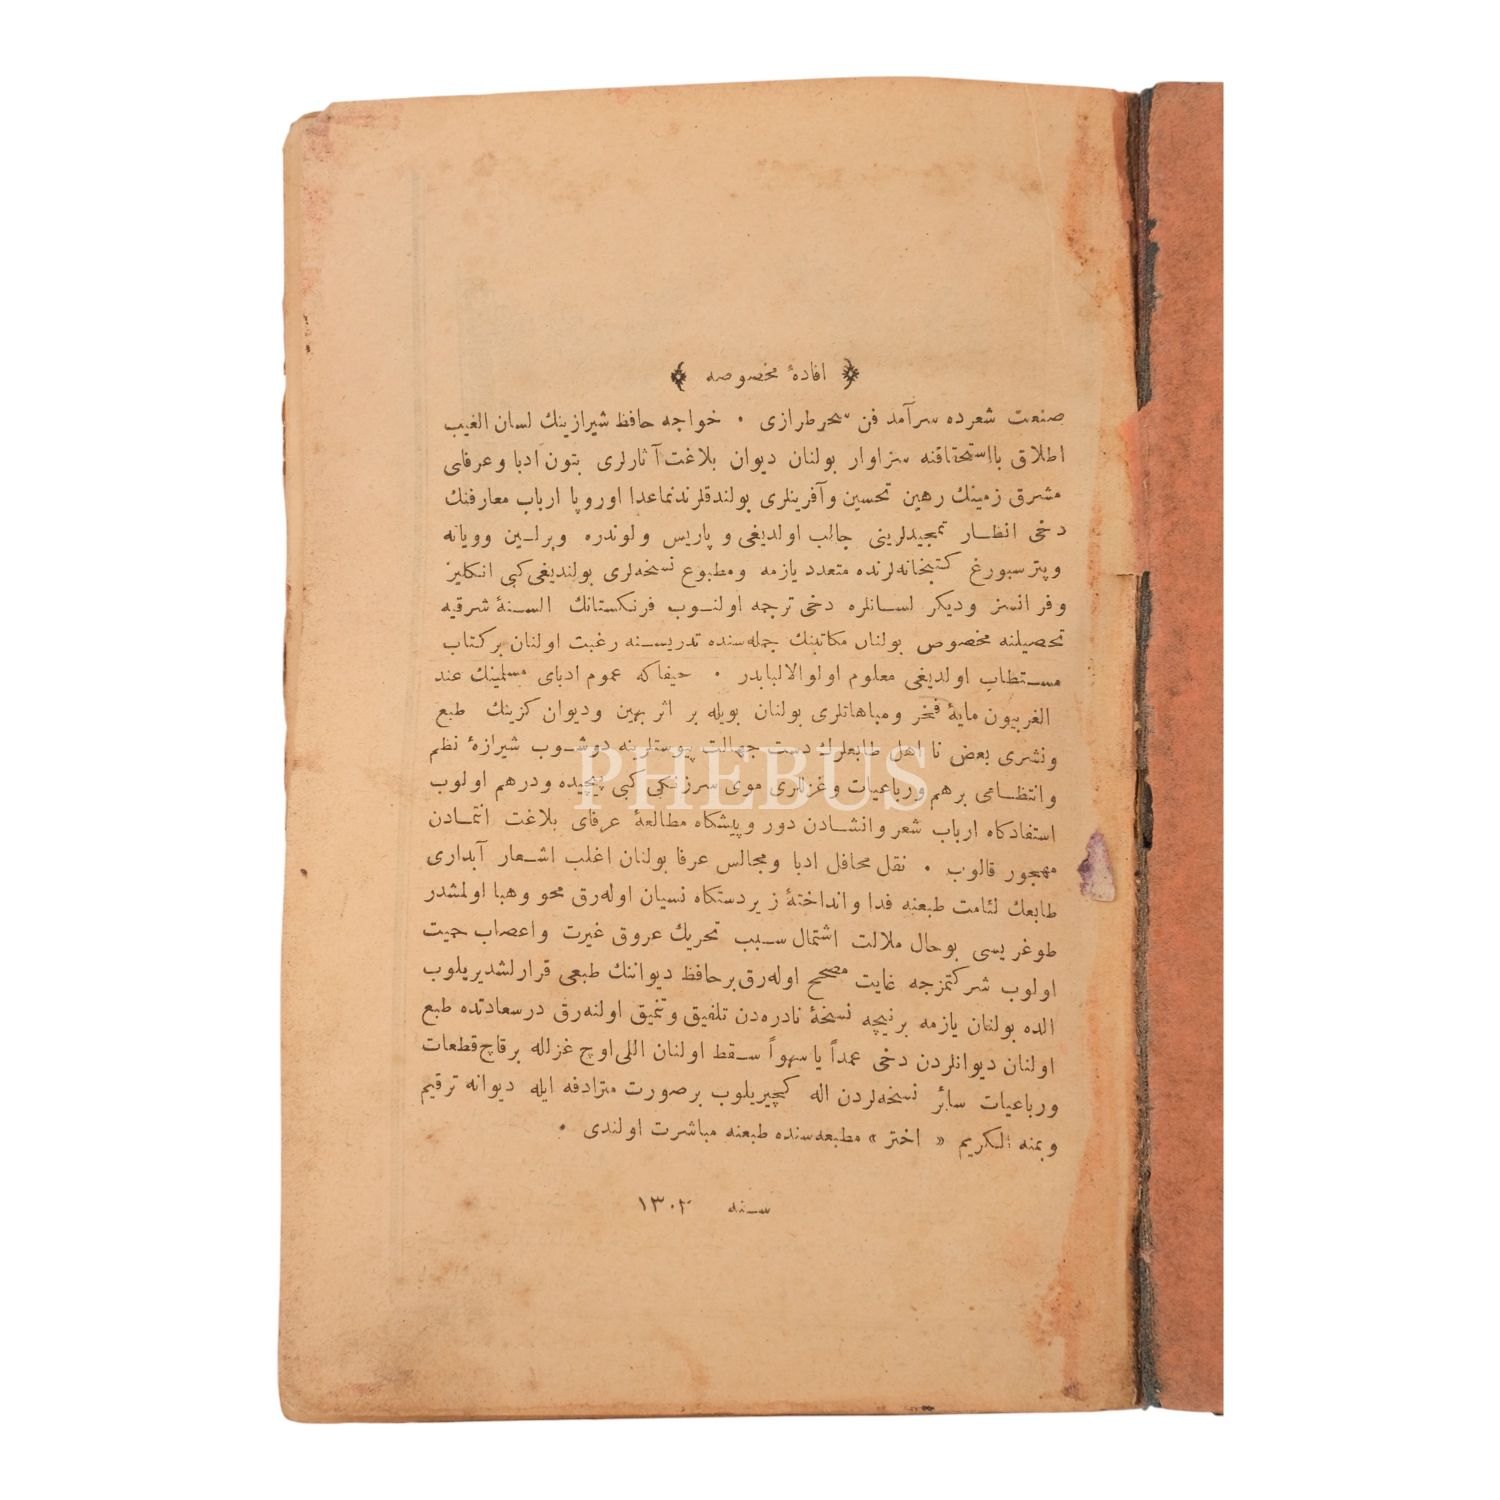 افادهٔ مخصوصه
صنعت شعرده سرآمد فن سحرطرازی . خواجه حافظ شیرازینك لسان الغیب
اطلاق بااستحقاقنه سزاوار بولنان دیوان بلاغت آثارلری بتون ادبا و عرفای
مشرق زمینك رهین تحسین و آفرینلری بولندقلرندنماعدا اوروپا ارباب معارفنك
دخی انظار تمجیدلرینی جالب اولدیغی و پاریس ولوندره وبرلین وویانه
و پترسبورغ كتبخانه‌لرنده متعدد یازمه ومطبوع نسخه‌لری بولندیغی كبی انكلیز
وفرانسز ودیكر لسانلره دخی ترجمه اولنوب فرنكستانك السنهٔ شرقیه
تحصیلنه مخصوص بولنان مكاتبنك جمله‌سنده تدریسنه رغبت اولنان بر كتاب
مستطاب اولدیغی معلوم اولوالالبابدر . حیفاكه عموم ادبای مسلمینك عند
الغربیون مایهٔ فخر ومباهاتلری بولنان بویله بر اثر بهین ودیوان كزینك طبع
ونشری بعض نا اهل طابعلرك دست جهالت پیوستلرینه دوشوب شیرازهٔ نظم
وانتظامی برهم ورباعیات وغزللری موی سرزنكی كبی پیچیده ودرهم اولوب
استفادكاه ارباب شعر وانشادن دور وپیشكاه مطالعهٔ عرفای بلاغت انتمادن
مهجور قالوب . نقل محافل ادبا ومجالس عرفا بولنان اغلب اشعار آبداری
طابعك لئامت طبعنه فدا وانداختهٔ زیردستكاه نسیان اوله‌رق محو وهبا اولمشدر
طوغریسی بوحال ملالت اشتمال سبب تحریك عروق غیرت واعصاب حمیت
اولوب شركتمزجه غایت مصحح اوله‌رق بر حافظ دیواننك طبعی قرارلشدیریلوب
الده بولنان یازمه برنیچه نسخهٔ نادره‌دن تلفیق وتنمیق اولنه‌رق درسعادتده طبع
اولنان دیوانلردن دخی عمداً یا سهواً سقط اولنان اللی‌اوچ غزلله برقاچ قطعات
ورباعیات سائر نسخه‌لردن اله كچیریلوب برصورت مترادفه ایله دیوانه ترقیم
وبمنه الكریم « اختر » مطبعه‌سنده طبعنه مباشرت اولندی .
سنه ١٣٠٢
PHEBUS